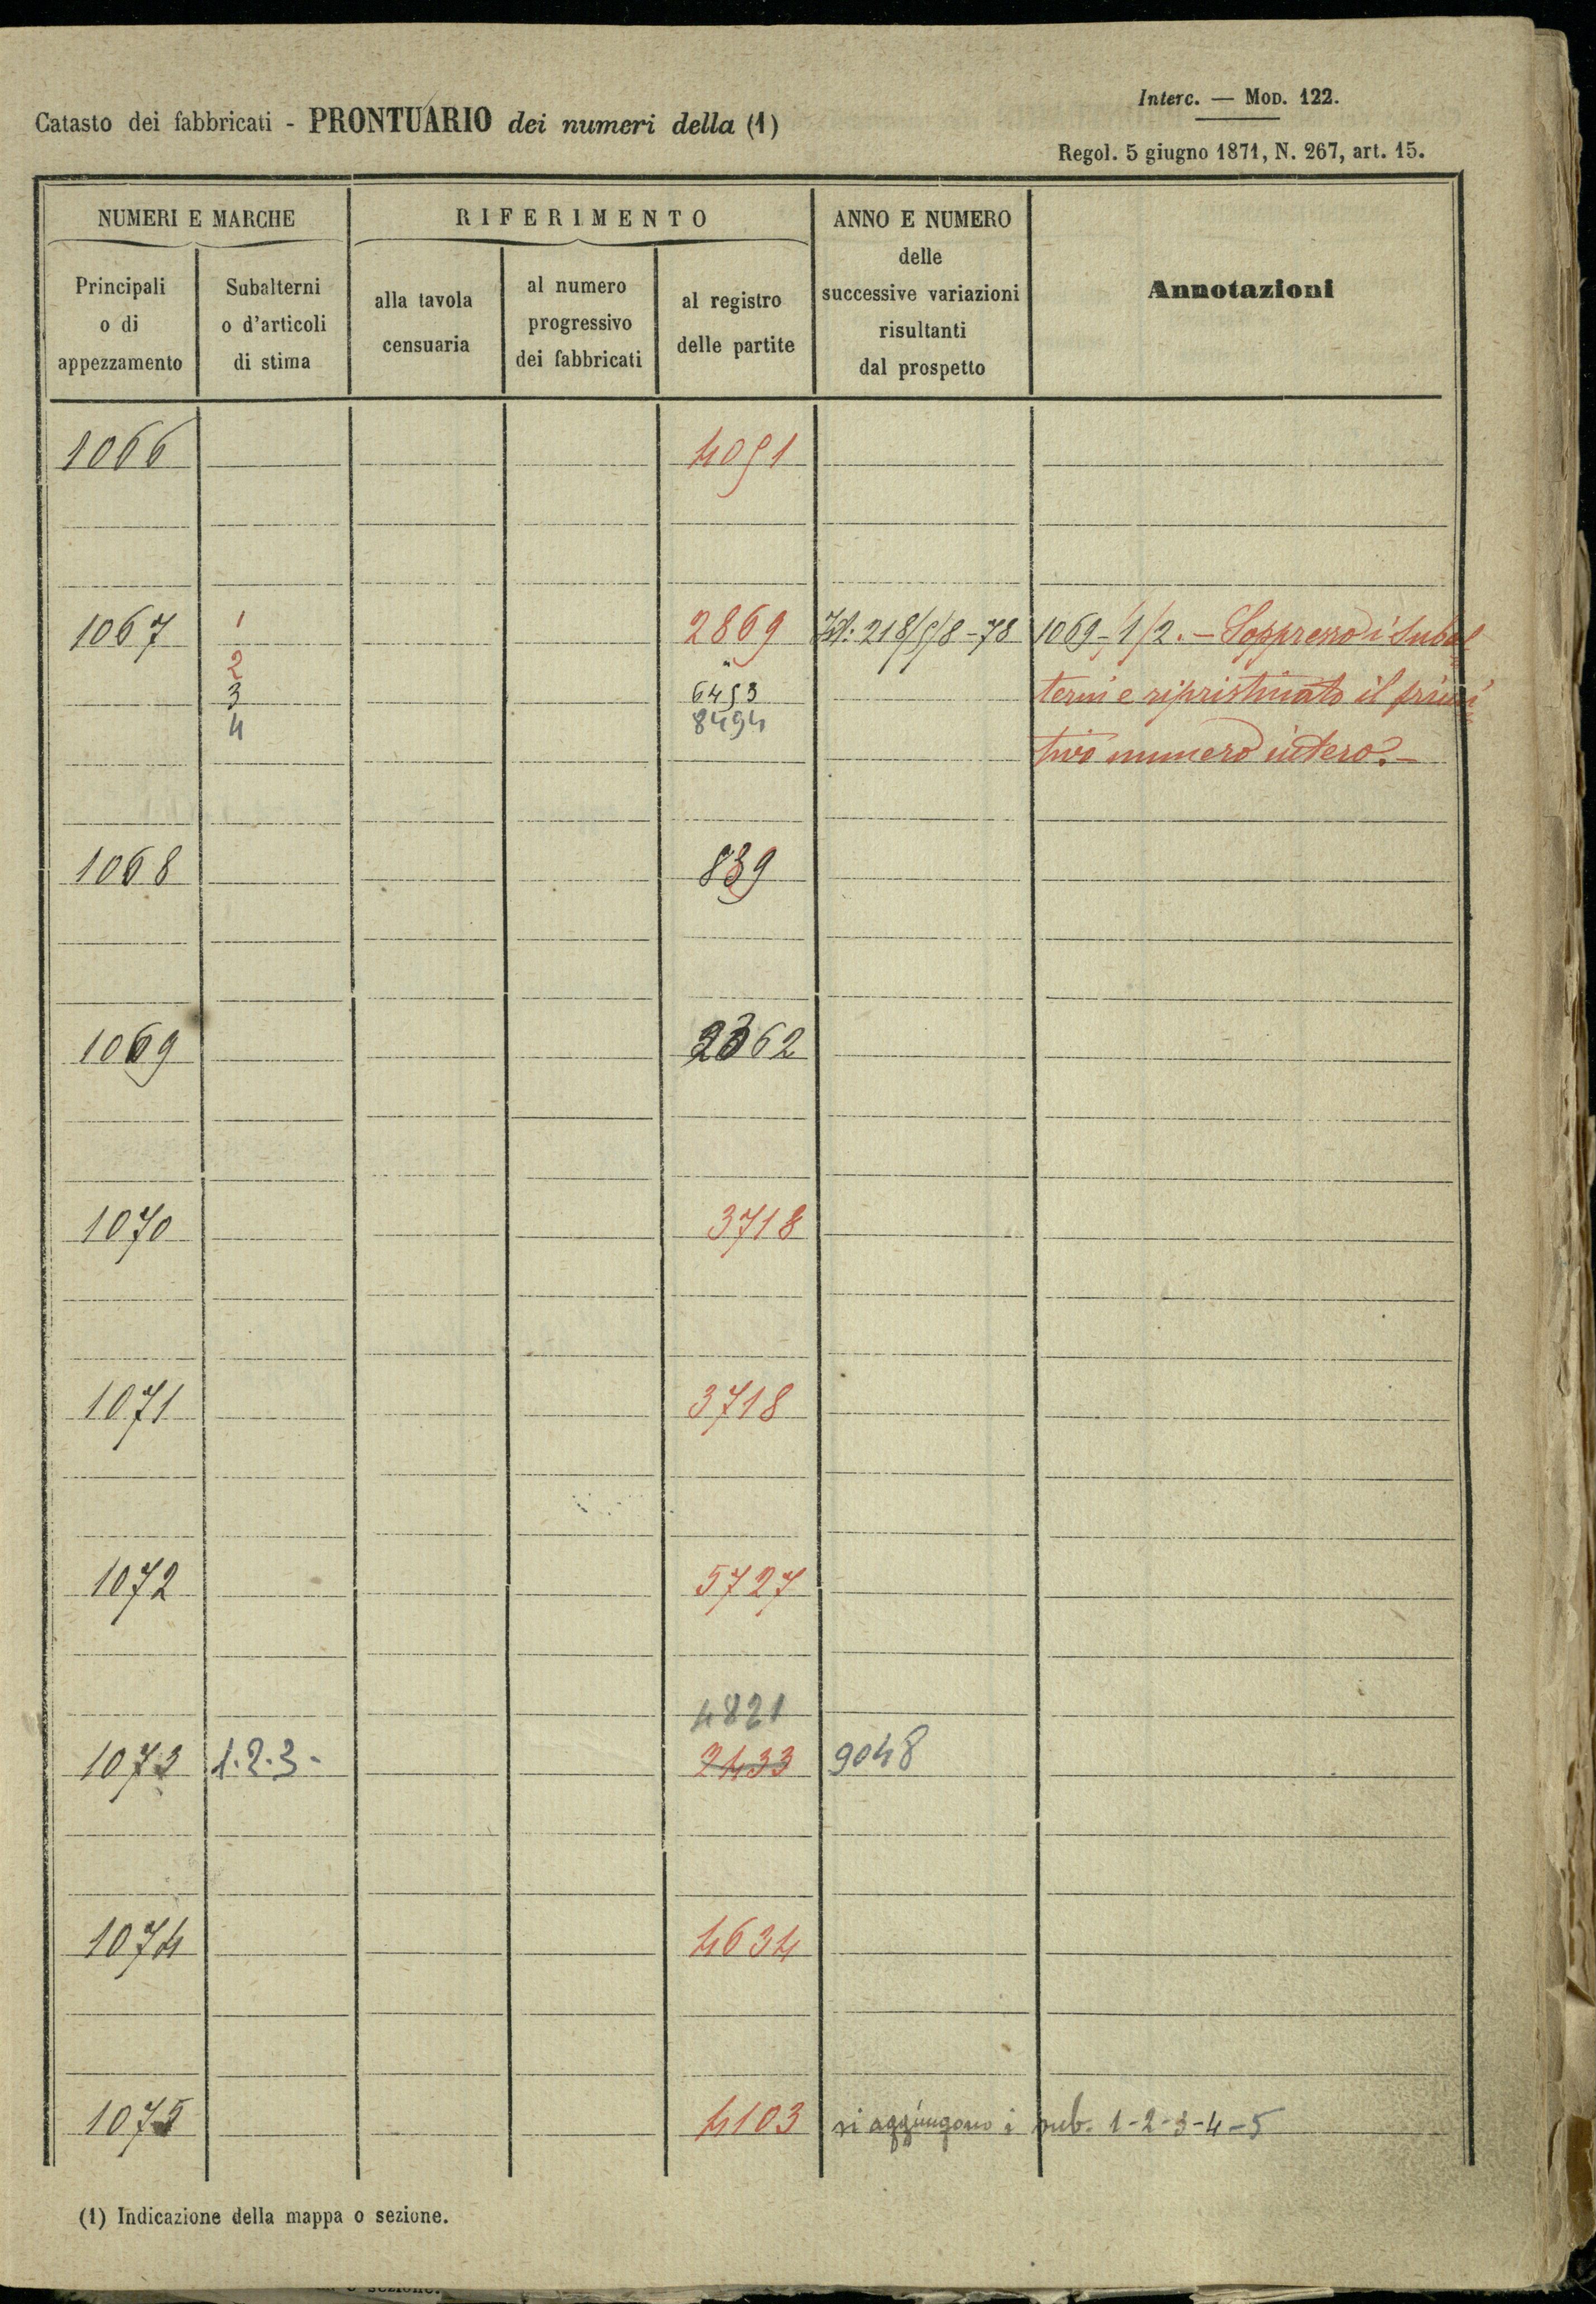 Interc. — MOD. 122.
Catasto dei fabbricati - PRONTUARIO dei numeri della (1)
Regol. 5 giugno 1871, N. 267, art. 15.
NUMERI E MARCHE RIFERIMENTO ANNO E NUMERO delle successive variazioni risultanti dal prospetto Annotazioni
Principali o di appezzamento Subalterni o d'articoli di stima alla tavola censuaria al numero progressivo dei fabbricati al registro delle partite
1066 4051
1067 1 2869 218/5/8-78 1069-1/2. - Soppresso i subal
2 "
3 6453 terni e ripristinato il primi
4 8494
tivo numero intero. -
1068 839
1069 2362
1070 3718
1071 3718
1072 5727
4821
1073 1.2.3- 2433 9048
1074 4634
1075 4103 si aggiungono i sub. 1-2-3-4-5
(1) Indicazione della mappa o sezione.